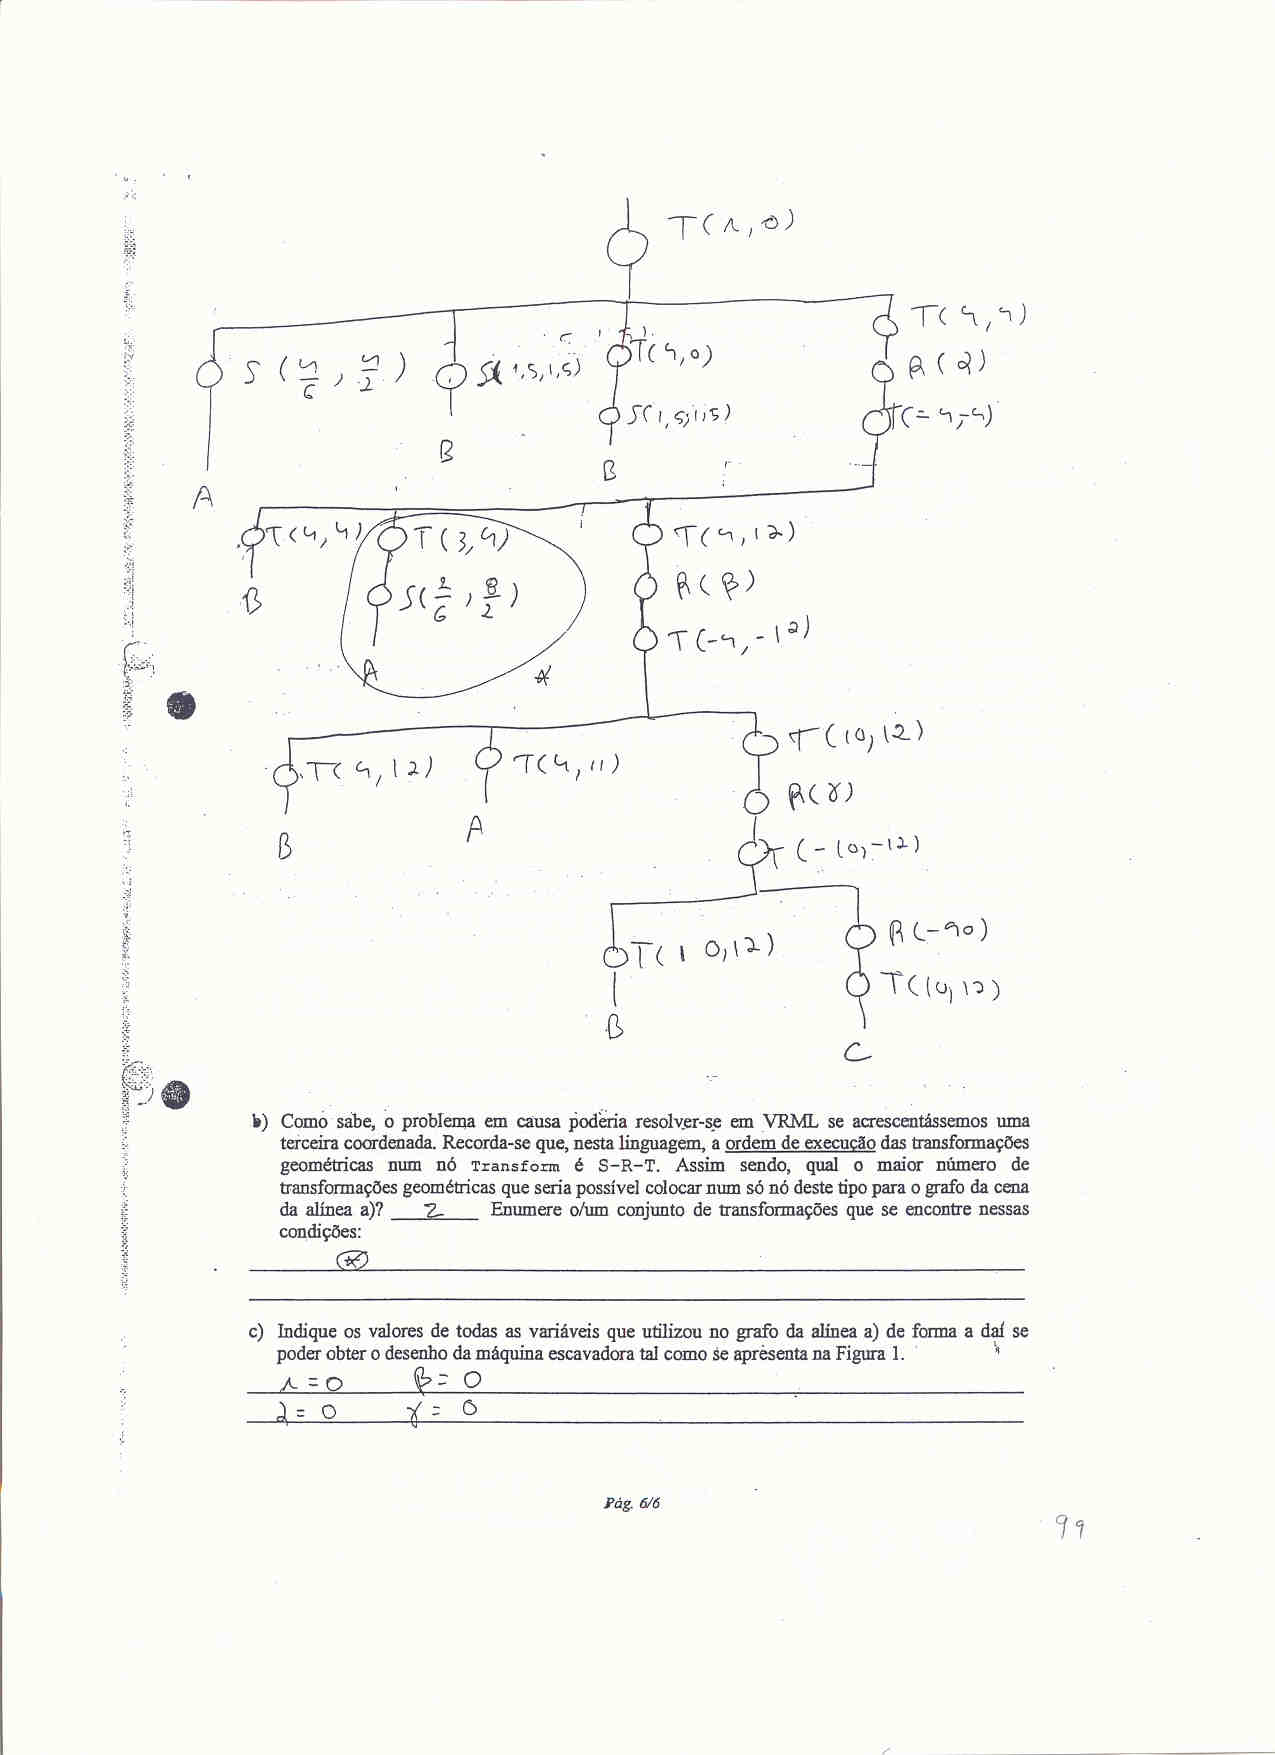 T(λ, 0)
T(4, 4)
S(4/6, 4/2) S(1,5, 1,5) T(4, 0) R(α)
S(1,5, 1,5) T(-4, -4)
B
B
A
T(4, 4) T(3, 4) T(4, 12)
S(2/6, 8/2) R(β)
B
T(-4, -12)
A *
T(10, 12)
T(4, 12) T(4, 11)
R(γ)
A
B T(-10, -12)
R(-90)
T(10, 12)
T(10, 12)
B
C
b) Como sabe, o problema em causa poderia resolver-se em VRML se acrescentássemos uma
terceira coordenada. Recorda-se que, nesta linguagem, a ordem de execução das transformações
geométricas num nó Transform é S-R-T. Assim sendo, qual o maior número de
transformações geométricas que seria possível colocar num só nó deste tipo para o grafo da cena
da alínea a)? 2 Enumere o/um conjunto de transformações que se encontre nessas
condições:
*
c) Indique os valores de todas as variáveis que utilizou no grafo da alínea a) de forma a daí se
poder obter o desenho da máquina escavadora tal como se apresenta na Figura 1.
λ = 0 β = 0
α = 0 γ = 0
Pág. 6/6
99